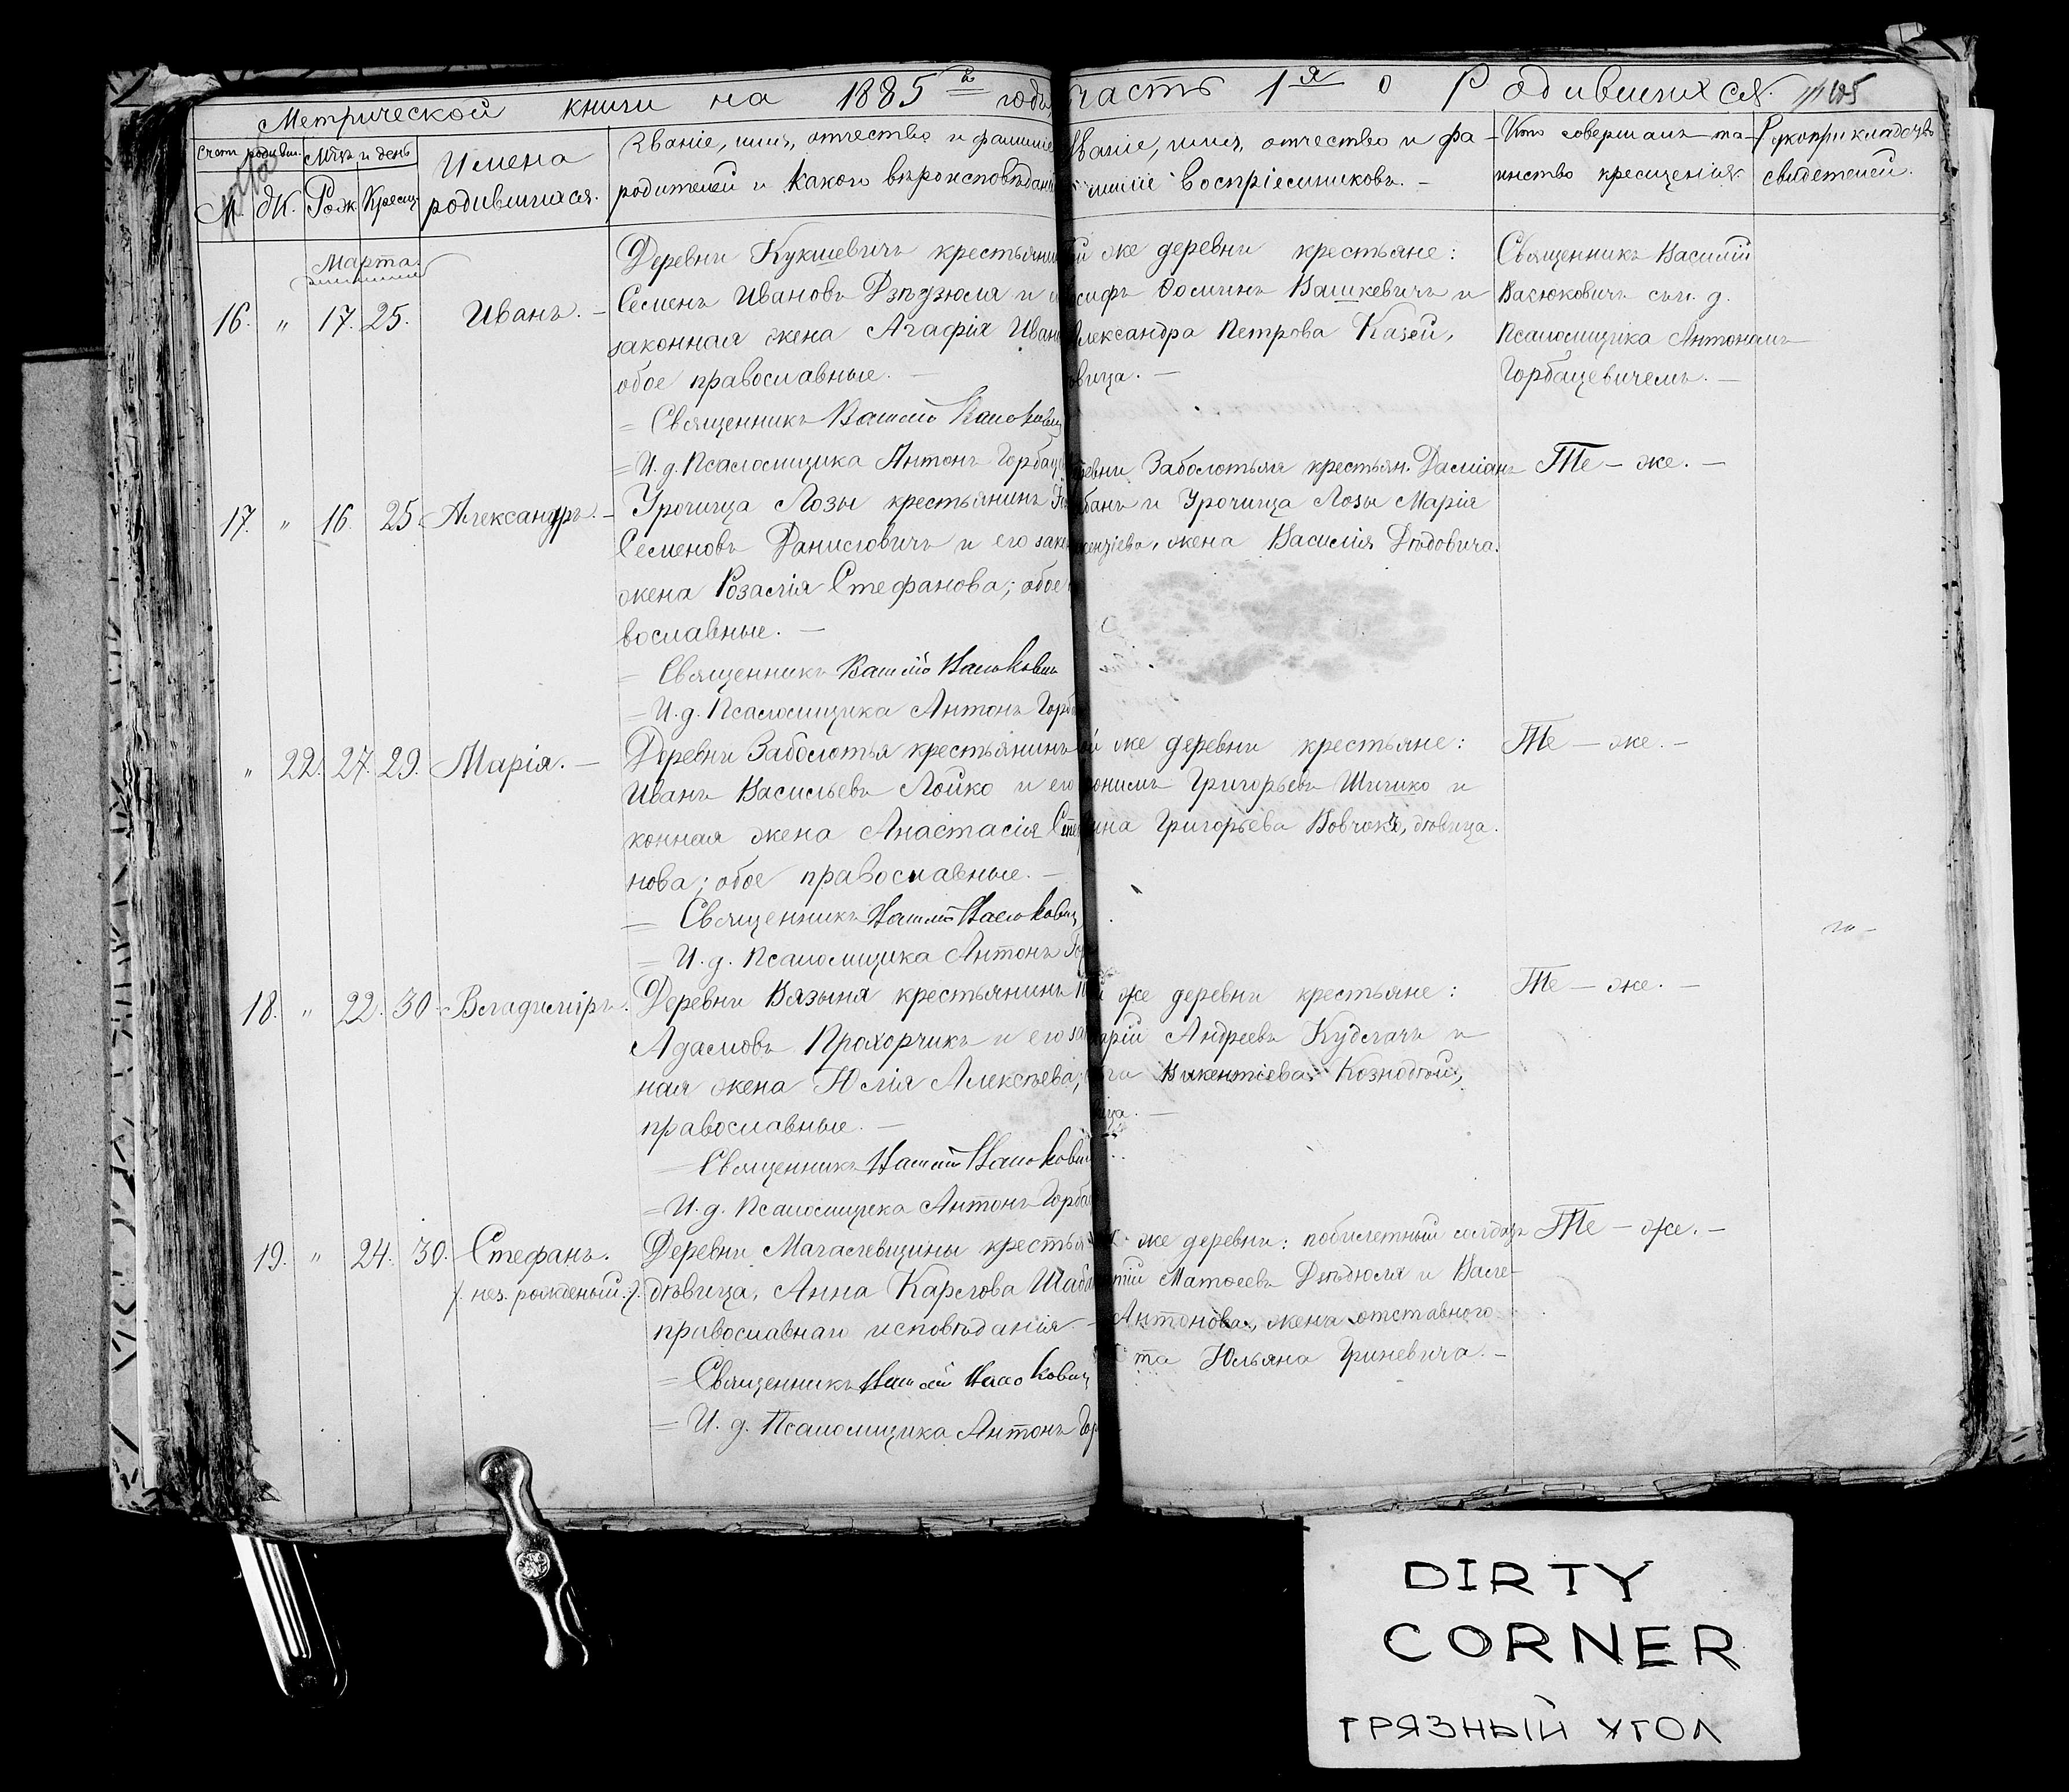 Метрической книги на 1885 годъ часть 1я о Родившихся.
Счетъ родивш.
М.
Ж.
Мѣс. и день
Рож
Крещ
Имена
родившихся.
Званіе, имя, отчество и фамиліе
родителей и какого вѣроисповѣданія
Званіе, имя, отчество и фа-
миліе воспріемниковъ. —
Кто совершалъ та-
инство крещенія
Рукоприкладство
свидетелей.
Марта
16. " 17. 25. Иванъ. —
Деревни Кукшевичъ крестьянинъ
Семенъ Ивановъ Дзѣдзюля и
законная жена Агафія Иван
обое православные. —
= Священникъ Василій Васюкович
= И. д. Псаломщика Антонъ Горбац
же деревни крестьяне:
сифъ Ѳоминъ Вашкевичъ и
Александра Петрова Казей,
овица. —
Священникъ Василій
Васюковичъ съ и. д.
Псаломщика Антономъ
Горбацевичемъ. —
17. " 16. 25. Александръ. —
Урочища Лозы крестьянинъ
Семеновъ Данисювичъ и его закон
жена Розалія Стефанова; обое
вославные. —
= Священникъ Василій Васюкович
= И. д. Псаломщика Антонъ Горба
ревни Заболотья крестьян. Даміанъ
банъ и Урочища Лозы Марія
жена Василія Дѣдовича.
Те — же. —
" 22. 27. 29. Марія. —
Деревни Заболотья крестьянинъ
Иванъ Васильевъ Лойко и его
конная жена Анастасія Сте
нова; обое православные. —
= Священникъ Василій Васюкович
= И. д. Псаломщика Антонъ Гор
же деревни крестьяне:
онимъ Григорьевъ Шишко и
ина Григорьева Вовчокъ, дѣвица.
Те — же. —
18. " 22. 30. Владиміръ.
Деревни Вязыня крестьянинъ
Адамовъ Прохорчикъ и его зак
ная жена Юлія Алексѣева;
православные. —
= Священникъ Василій Васюкович
= И. д. Псаломщика Антонъ Горба
же деревни крестьяне:
арій Андреевъ Кудлачъ и
Викентіева Кознодѣй,
вица. —
Те — же. —
19. " 24. 30. Стефанъ.
/. нез. рожденый ./.
Деревни Магалевщины крестья
дѣвица, Анна Карлова Шабл
православнаго исповѣданія. —
= Священникъ Василій Васюкович
= И. д. Псаломщика Антонъ Гор
же деревни: побилетный солдатъ
Матѳеевъ Дзѣдюля и Вале-
Антонова, жена отставного
та Юльяна Гриневича. —
Те — же. —
DIRTY
CORNER
ГРЯЗНЫЙ УГОЛ